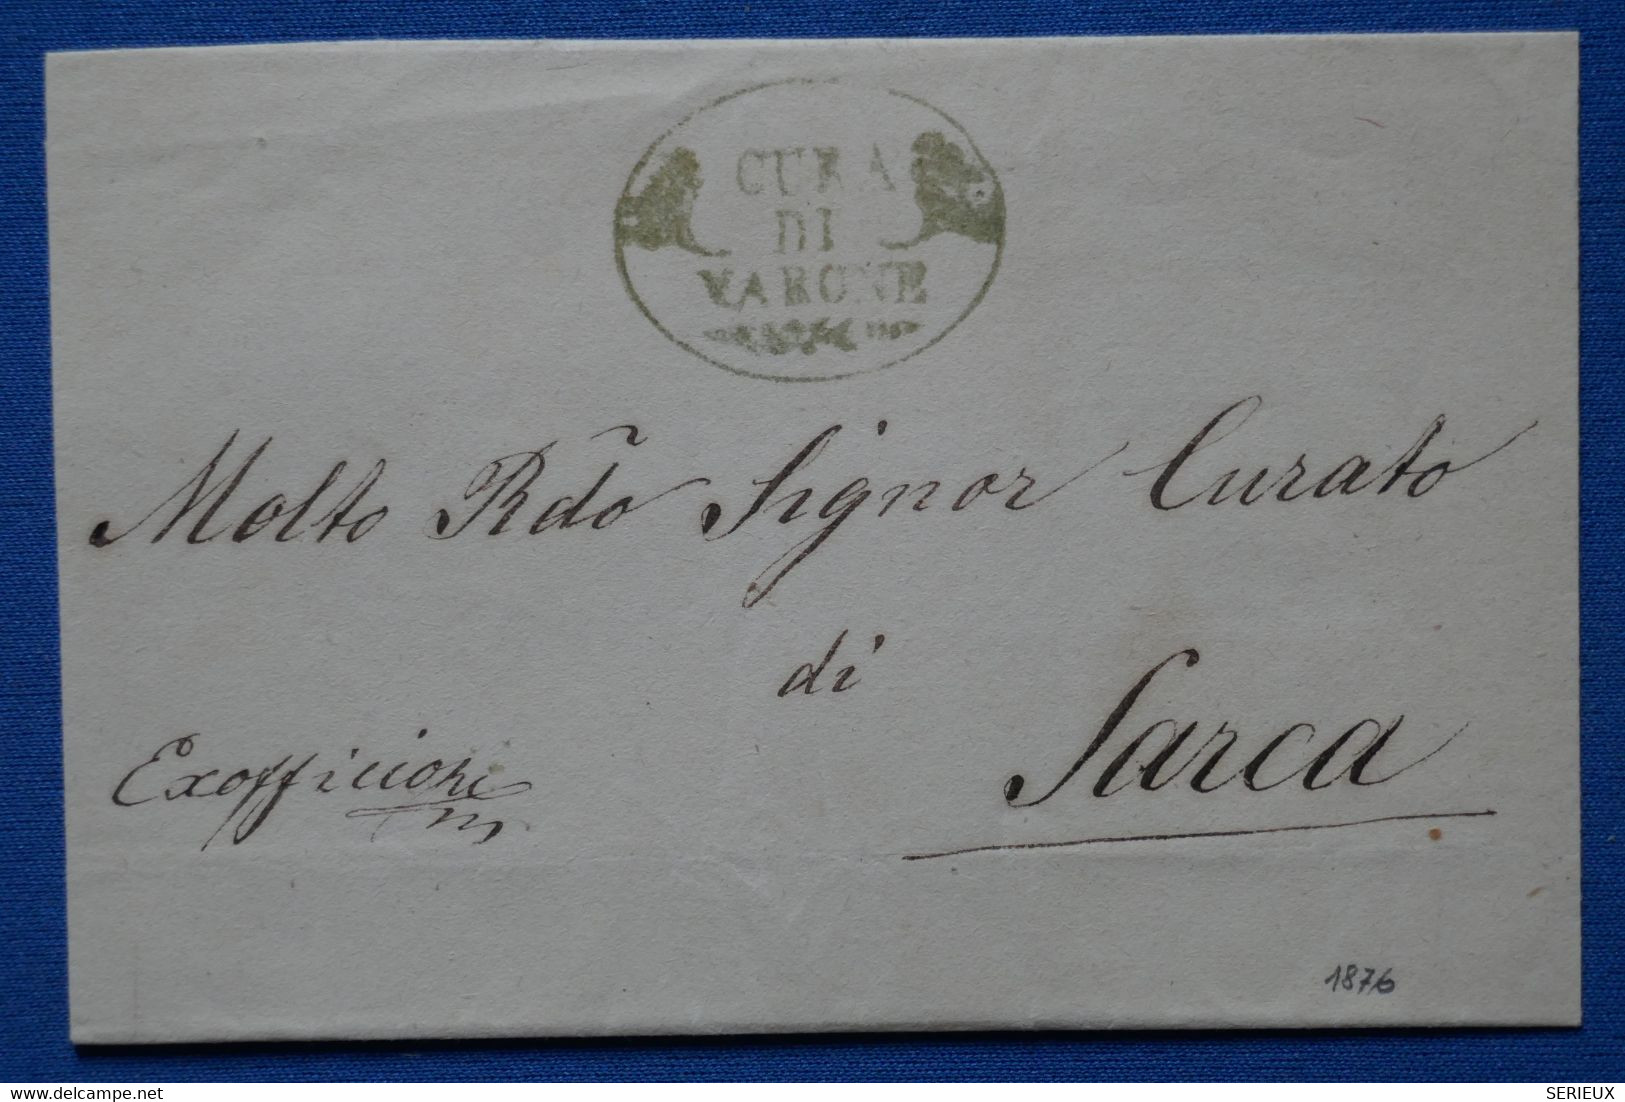 CURA
DI
VARONE
Molto Rdo Signor Curato
di
Sarca
Exofficiosi
1876
www.delcampe.net
SERIEUX